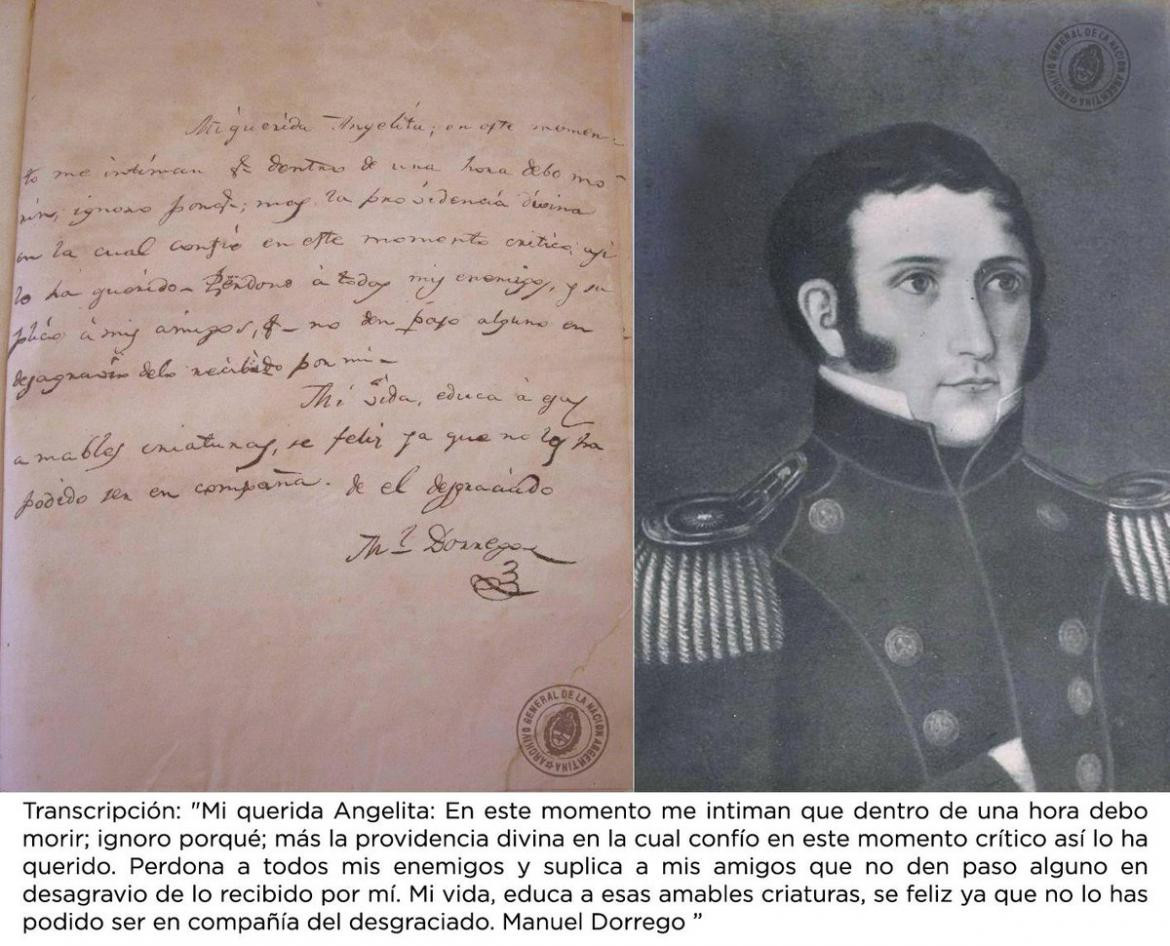 Mi querida Angelita; en este momen-
to me intiman q.e dentro de una hora debo mo-
rir, ignoro porq.e; mas la providencia divina
en la cual confio en este momento critico, asi
lo ha querido- Perdono à todos mis enemigos, y su
plico á mis amigos, q.e no den paso alguno en
desagravio delo recibido por mi-
Mi vida, educa à esas
amables criaturas, se feliz ya que no lo ha
podido ser en compañia. de el desgraciado
M.l Dorrego
ARCHIVO GENERAL DE LA NACION ARGENTINA
ARCHIVO GENERAL DE LA NACION ARGENTINA
Transcripción: "Mi querida Angelita: En este momento me intiman que dentro de una hora debo
morir; ignoro porqué; más la providencia divina en la cual confío en este momento crítico así lo ha
querido. Perdona a todos mis enemigos y suplica a mis amigos que no den paso alguno en
desagravio de lo recibido por mí. Mi vida, educa a esas amables criaturas, se feliz ya que no lo has
podido ser en compañía del desgraciado. Manuel Dorrego ”